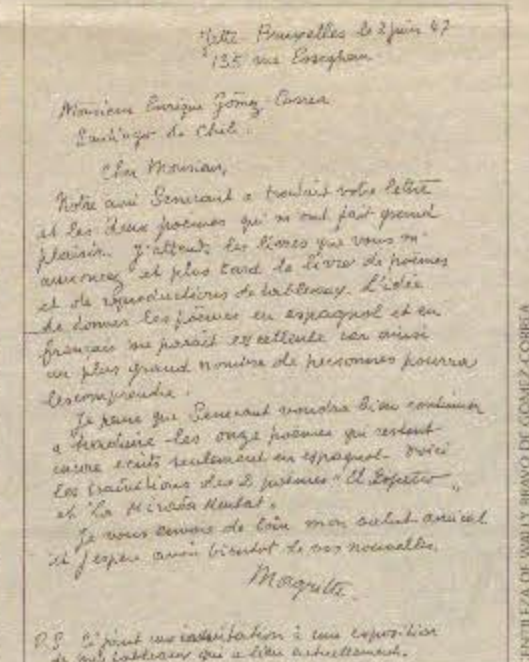 Jette-Bruxelles le 2 juin 47
135 rue Esseghem
Monsieur Enrique Gómez-Correa
Santiago de Chili.
Cher Monsieur,
Notre ami Senecaut a traduit votre lettre
et les deux poèmes qui m'ont fait grand
plaisir. J'attends les livres que vous m'
annoncez et plus tard le livre de poèmes
et de reproductions de tableaux. L'idée
de donner les poèmes en espagnol et en
français me parait excellente car ainsi
un plus grand nombre de personnes pourra
les comprendre.
Je pense que Senecaut voudra bien continuer
à traduire les onze poèmes qui restent
encore écrits seulement en espagnol. Voici
les traductions des 2 poèmes "El Espectro"
et "La Mirada Mental".
Je vous envoie de loin mon salut amical
et j'espère avoir bientôt de vos nouvelles.
Magritte.
P.S. Ci-joint une invitation à une exposition
de mes tableaux qui a lieu actuellement.
DE WALLY BRAVO DE GOMEZ-CORREA